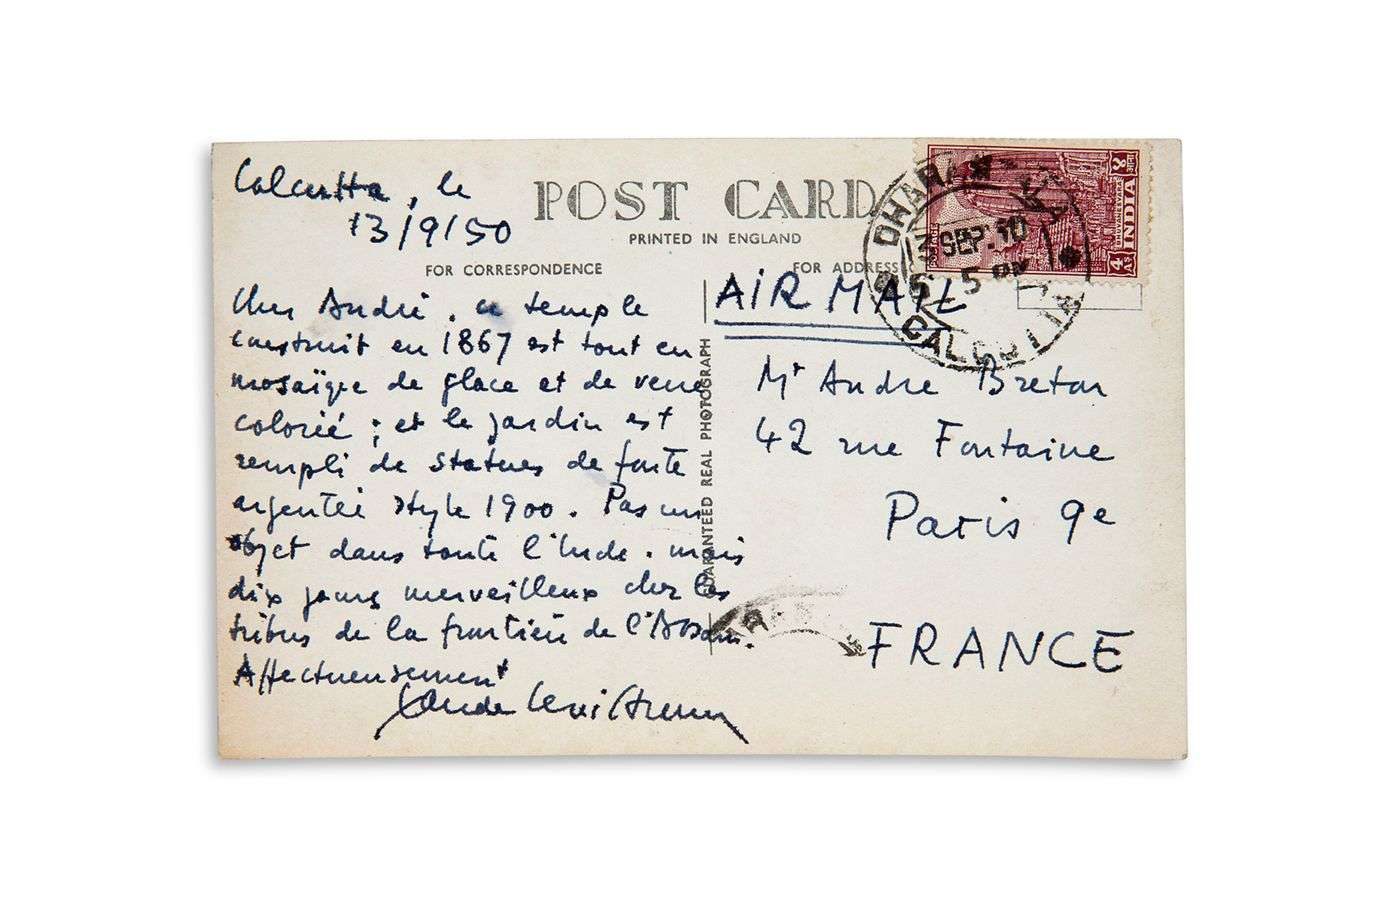 Calcutta, le
13/9/50
POST CARD
PRINTED IN ENGLAND
FOR CORRESPONDENCE
FOR ADDRESS
Cher André, ce temple
construit en 1867 est tout en
mosaïque de glace et de verre
colorié ; et le jardin est
rempli de statues de fonte
argentée style 1900. Pas un
objet dans toute l'Inde. mais
dix jours merveilleux chez les
tribus de la frontière de l'Assam.
Affectueusement
Claude Lévi Strauss
GUARANTEED REAL PHOTOGRAPH
AIR MAIL
Mr André Breton
42 rue Fontaine
Paris 9e
FRANCE
INDIA
4 As
SEP. 50
CALCUTTA